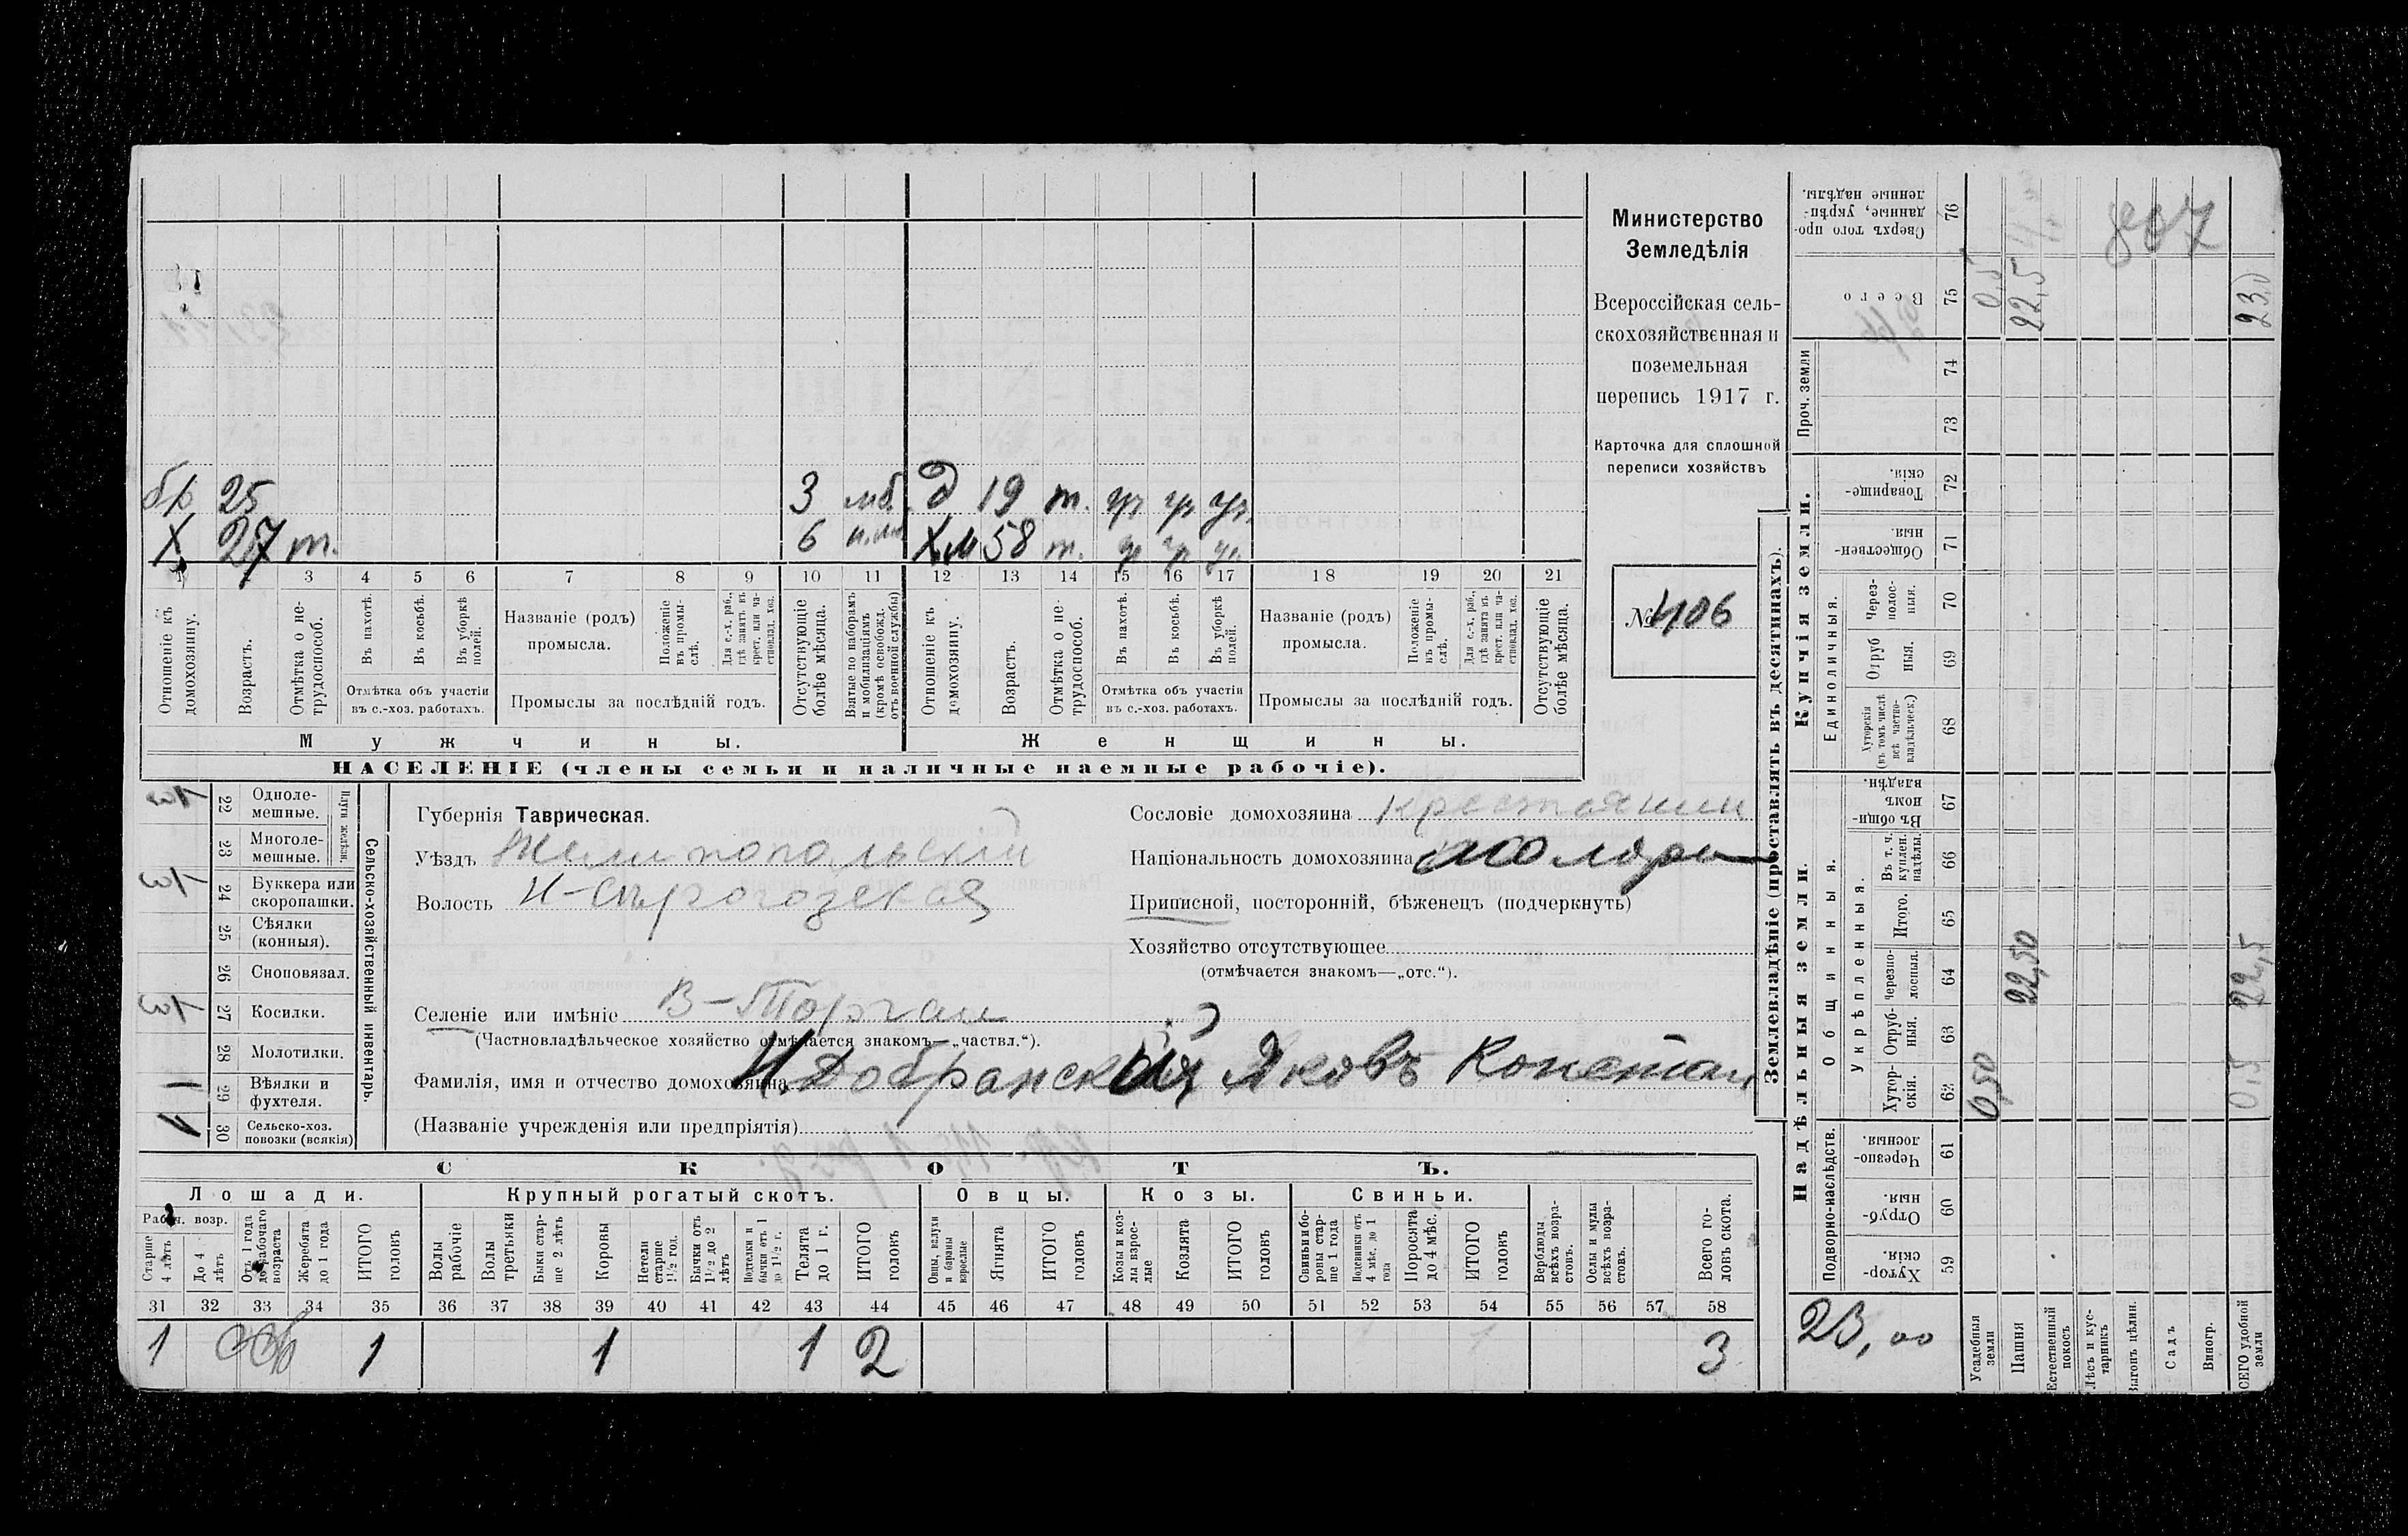 Министерство
Земледѣлія
Всероссійская сель-
скохозяйственная и
поземельная
перепись 1917 г.
Карточка для сплошной
переписи хозяйствъ
№ 406
бр 25 3 мб. д 19 т. ур ур ур.
Х 27 т. 6 Х.м 58 т. ур ур ур.
1 3 4 5 6 7 8 9 10 11 12 13 14 15 16 17 18 19 20 21
Отношеніе къ домохозяину.
Возрастъ.
Отмѣтка о не-трудоспособ.
Въ пахотѣ.
Въ косьбѣ.
Въ уборкѣ полей.
Отмѣтка объ участіи въ с.-хоз. работахъ.
Названіе (родъ) промысла.
Положеніе въ промы-слѣ.
Для с.-х. раб., гдѣ занятъ въ крест. или ча-стновлад. хоз.
Промыслы за послѣдній годъ.
Отсутствующіе болѣе мѣсяца.
Взятые по наборамъ и мобилизаціямъ (кромѣ освобожд. отъ военной службы)
Отношеніе къ домохозяину.
Возрастъ.
Отмѣтка о не-трудоспособ.
Въ пахотѣ.
Въ косьбѣ.
Въ уборкѣ полей.
Отмѣтка объ участіи въ с.-хоз. работахъ.
Названіе (родъ) промысла.
Положеніе въ промы-слѣ.
Для с.-х. раб., гдѣ занята въ крест. или ча-стновлад. хоз.
Промыслы за послѣдній годъ.
Отсутствующіе болѣе мѣсяца.
Мужчины. Женщины.
НАСЕЛЕНІЕ (члены семьи и наличные наемные рабочіе).
Сельско-хозяйственный инвентарь.
Плуги желѣзн.
22 Одноле-мешные.
23 Многоле-мешные.
24 Буккера или скоропашки.
25 Сѣялки (конныя).
26 Сноповязал.
27 Косилки.
28 Молотилки.
29 Вѣялки и фухтеля. 1
30 Сельско-хоз. повозки (всякія) 1
Губернія Таврическая.
Уѣздъ Мелитопольскій
Волость Н-Сѣрогозская
Селеніе или имѣніе В-Торгаи
(Частновладѣльческое хозяйство отмѣчается знакомъ—„частвл.“).
Фамилія, имя и отчество домохозяина Добранскій Яковъ Констан
(Названіе учрежденія или предпріятія)
Сословіе домохозяина крестьянин
Національность домохозяина малоро
Приписной, посторонній, бѣженецъ (подчеркнуть)
Хозяйство отсутствующее
(отмѣчается знакомъ—„отс.“).
СКОТЪ.
Лошади. Крупный рогатый скотъ. Овцы. Козы. Свиньи.
Рабоч. возр.
Старше 4 лѣтъ
До 4 лѣтъ
Отъ 1 года до рабочаго возраста
Жеребята до 1 года
ИТОГО головъ
Волы рабочіе
Волы третьяки
Быки стар-ше 2 лѣтъ
Коровы
Нетели старше 1½ год.
Бычки отъ 1½ до 2 лѣтъ
Подтелки и бычки отъ 1 до 1½ г.
Телята до 1 г.
ИТОГО головъ
Овцы, валухи и бараны взрослые
Ягнята
ИТОГО головъ
Козы и коз-лы взрос-лые
Козлята
ИТОГО головъ
Свиньи и бо-ровы стар-ше 1 года
Подсвинки отъ 4 мѣс. до 1 года
Поросята до 4 мѣс.
ИТОГО головъ
Верблюды всѣхъ возра-стовъ.
Ослы и мулы всѣхъ возра-стовъ.
Всего го-ловъ скота.
31 32 33 34 35 36 37 38 39 40 41 42 43 44 45 46 47 48 49 50 51 52 53 54 55 56 57 58
1 1 1 1 2 3
Землевладѣніе (проставлять въ десятинахъ).
Надѣльныя земли. Купчія земли. Проч. земли
Подворно-наслѣдств.
Общинныя.
Укрѣпленныя.
Единоличныя.
59 Хутор-скія.
60 Отруб-ныя.
61 Черезпо-лосныя.
62 Хутор-скія.
63 Отруб-ныя.
64 Черезпо-лосныя.
65 Итого.
66 Въ т. ч. куплен. надѣлы.
67 Въ общи-номъ владѣн.
68 Хуторскія (въ томъ числѣ всѣ частно-владѣльческ.)
69 Отруб ныя.
70 Через-полос-ныя.
71 Обществен-ныя.
72 Товарище-скія.
73
74
75 Всего
76 Сверхъ того про-данные, укрѣп-ленные надѣлы.
Усадебныя земли 0,50 0,5
Пашня 22,50 22,5
Естественный покосъ
Лѣсъ и кус-тарникъ
Выгонъ цѣлин.
Садъ
Виногр.
ВСЕГО удобной земли 0,5 22,5 23,0
23,00
807